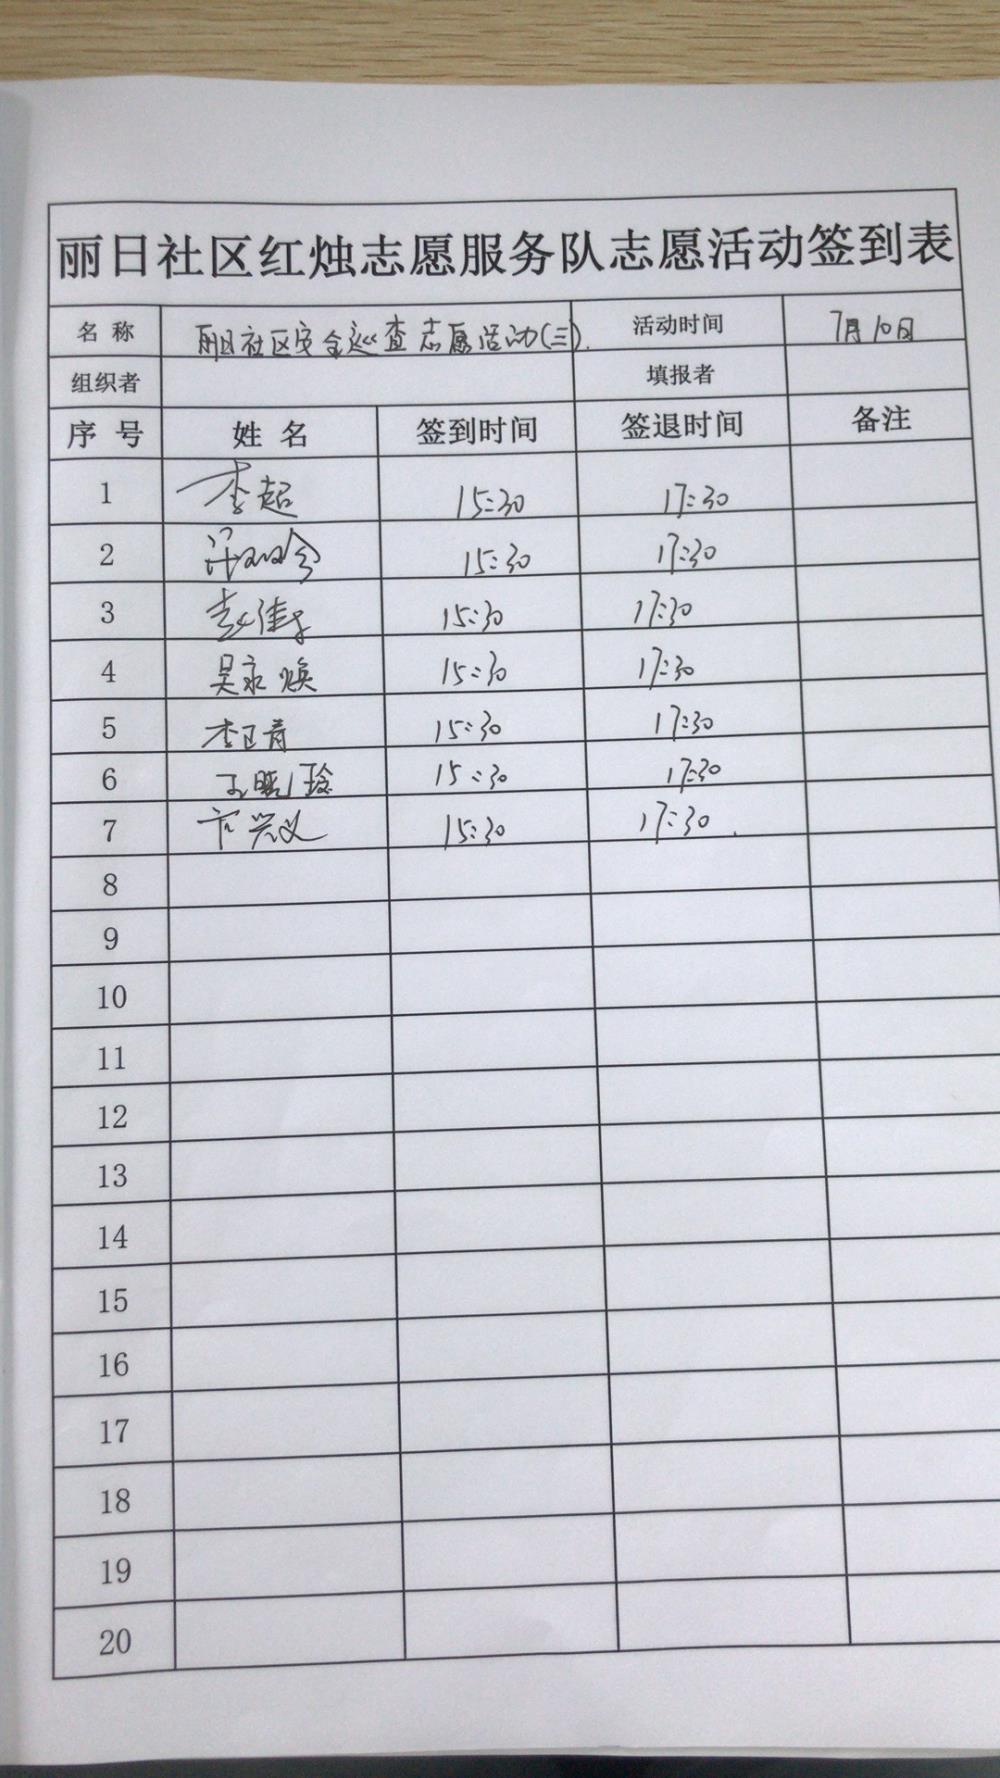 丽日社区红烛志愿服务队志愿活动签到表
名 称 丽日社区安全巡查志愿活动(三). 活动时间 7月10日
组织者 填报者
序 号 姓 名 签到时间 签退时间 备注
1 李超 15:30 17:30
2 15:30 17:30
3 15:30 17:30
4 吴永焕 15:30 17:30
5 李卫青 15:30 17:30
6 王晓玲 15:30 17:30
7 兴义 15:30 17:30
8
9
10
11
12
13
14
15
16
17
18
19
20